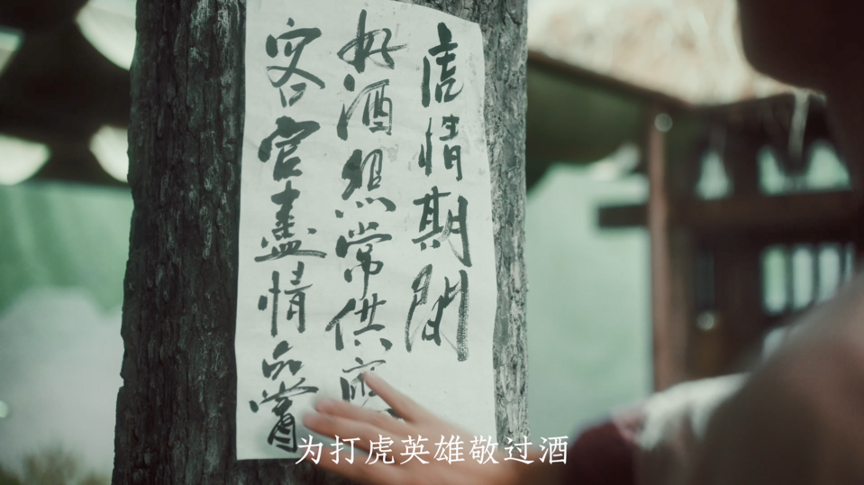 虎情期間
好酒照常供應
客官盡情品嘗
为打虎英雄敬过酒